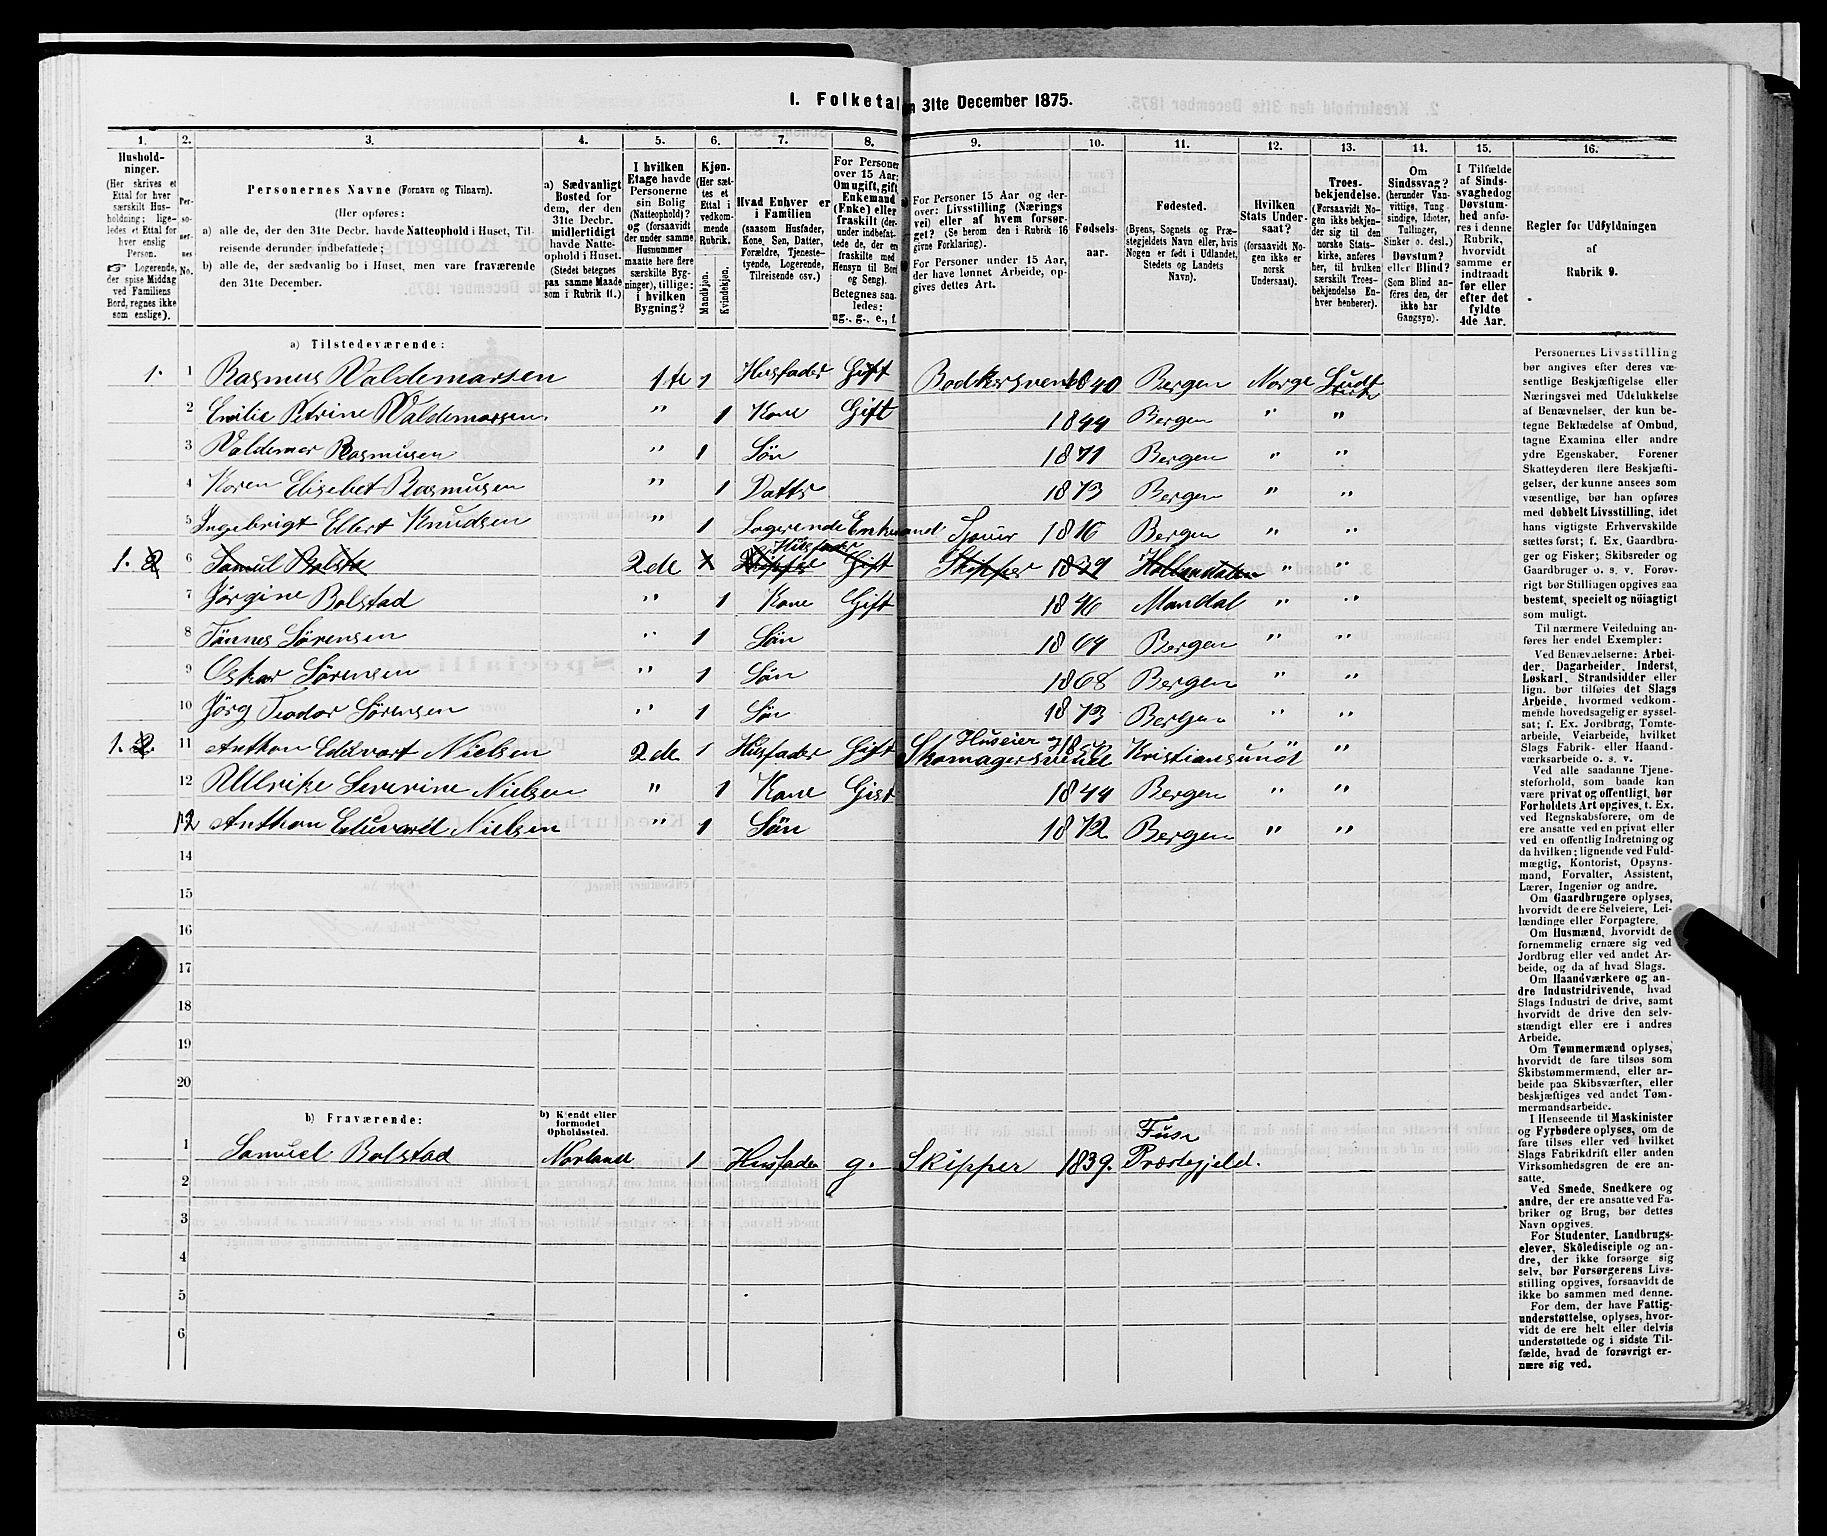 I. Folketal den 31te December 1875.
1. 2. 3. 4. 5. 6. 7. 8. 9. 10. 11. 12. 13. 14. 15. 16.
Hushold-
ninger.
(Her skrives et
Ettal for hver
særskilt Hus-
holdning; lige-
ledes et Ettal for
hver enslig
Person.
☞ Logerende,
der spise Middag
ved Familiens
Bord, regnes ikke
som enslige).
Per-
so-
ner-
nes
No.
Personernes Navne (Fornavn og Tilnavn).
(Her opføres:
a) alle de, der den 31te Decbr. havde Natteophold i Huset, Til-
reisende derunder indbefattede;
b) alle de, der sædvanlig bo i Huset, men vare fraværende
den 31te December.
a) Sædvanligt
Bosted for
dem, der den
31te Decbr.
midlertidigt
havde Natte-
ophold i Huset.
(Stedet betegnes
paa samme Maade
som i Rubrik 11.)
I hvilken
Etage havde
Personerne
sin Bolig
(Natteophold)?
og (forsaavidt
der under samme
Husnummer
maatte høre flere
særskilte Byg-
ninger), tillige:
i hvilken
Bygning?
Kjøn.
(Her sæt-
tes et
Ettal i
vedkom-
mende
Rubrik.
Mandkjøn.
Kvindekjøn.
Hvad Enhver er
i Familien
(saasom Husfader,
Kone, Søn, Datter,
Forældre, Tjeneste-
tyende, Logerende,
Tilreisende osv.)
For Personer
over 15 Aar:
Om ugift, gift,
Enkemand
(Enke) eller
fraskilt (der-
under indbefat-
tede de, der ere
fraskilte med
Hensyn til Bord
og Seng).
Betegnes saa-
ledes:
ug., g., e., f.
For Personer 15 Aar og der-
over: Livsstilling (Nærings-
vei) eller af hvem forsør-
get? (Se herom den i Rubrik 16
givne Forklaring).
For Personer under 15 Aar,
der have lønnet Arbeide, op-
gives dettes Art.
Fødsels-
aar.
Fødested.
(Byens, Sognets og Præ-
stegjeldets Navn eller, hvis
Nogen er født i Udlandet,
Stedets og Landets
Navn).
Hvilken
Stats Under-
saat?
(forsaavidt No-
gen ikke er
norsk
Undersaat).
Troes-
bekjendelse.
(Forsaavidt No-
gen ikke bekjen-
der sig til den
norske Stats-
kirke, anføres
her, til hvilken
særskilt Troes-
bekjendelse En-
hver henhører).
Om
Sindssvag?
(herunder Van-
vittige, Tung-
sindige, Idioter,
Tullinger,
Sinker o. desl.)
Døvstum?
eller Blind?
(Som Blind an-
føres den, der
ikke har
Gangsyn).
I Tilfælde
af Sinds-
svaghed og
Døvstum-
hed anfø-
res i denne
Rubrik,
hvorvidt
samme er
indtraadt
før eller
efter det
fyldte
4de Aar.
Regler for Udfyldningen
af
Rubrik 9.
a) Tilstedeværende:
1. 1 Rasmus Valdemarsen 1te 1 Husfader Gift Bødkersvend 1840 Bergen Norge Luth
2 Emilie Petrine Valdemarsen. " 1 Kone Gift 1844 Bergen " "
3 Valdemar Rasmusen " 1 Søn 1871 Bergen " "
4 Karen Elisebet Rasmusen " 1 Datter 1873 Bergen " "
5 Ingebrigt Ellert Knudsen " 1 Logerende Enkemand Sjouer 1816 Bergen " "
1. 2 6 Samuel Bolstad 2de 1 Husfader Gift Skipper 1839 " "
7 Jørgine Bolstad " 1 Kone Gift 1846 Mandal " "
8 Tønnes Sørensen " 1 Søn 1864 Bergen " "
9 Oskar Sørensen " 1 Søn 1868 Bergen " "
10 Jørg Teodor Sørensen " 1 Søn 1873 Bergen " "
1. 11 Anthon Edevart Nielsen 2de 1 Husfader Gift Huseier og Skomagersvend Kristiansund " "
12 Ullrike Severine Nielsen " 1 Kone Gift 1844 Bergen " "
Anthon Eduvard Nielsen " 1 Søn 1872 Bergen " "
14
15
16
17
18
19
20
b) Fraværende:
b) Kjendt eller
formodet
Opholdssted.
1 Samuel Bolstad Norland 1 Husfader g. Skipper 1839. Fuse Præstegjeld.
2
3
4
5
6
Personernes Livsstilling
bør angives efter deres væ-
sentlige Beskjæftigelse eller
Næringsvei med Udelukkelse
af Benævnelser, der kun be-
tegne Beklædelse af Ombud,
tagne Examina eller andre
ydre Egenskaber. Forener
Skatteyderen flere Beskjæfti-
gelser, der kunne ansees som
væsentlige, bør han opføres
med dobbelt Livsstilling, idet
hans vigtigste Erhvervskilde
sættes først; f. Ex. Gaardbru-
ger og Fisker; Skibsreder og
Gaardbruger o. s. v. Forøv-
rigt bør Stillingen opgives saa
bestemt, specielt og nöiagtigt
som muligt.
Til nærmere Veiledning an-
føres her endel Exempler:
Ved Benævnelserne: Arbei-
der, Dagarbeider, Inderst,
Løskarl, Strandsidder eller
lign. bør tilføies det Slags
Arbeide, hvormed vedkom-
mende hovedsagelig er syssel-
sat; f. Ex. Jordbrug, Tomte-
arbeide, Veiarbeide, hvilket
Slags Fabrik- eller Haand-
værksarbeide o. s. v.
Ved alle saadanne Tjene-
steforhold, som baade kan
være privat og offentligt, bør
Forholdets Art opgives, t. Ex.
ved Regnskabsførere, om de
ere ansatte ved en privat eller
ved en offentlig Indretning og
da hvilken; lignende ved Fuld-
mægtig, Kontorist, Opsyns-
mand, Forvalter, Assistent,
Lærer, Ingeniør og andre.
Om Gaardbrugere oplyses,
hvorvidt de ere Selveiere, Lei-
lændinge eller Forpagtere.
Om Husmænd, hvorvidt de
fornemmelig ernære sig ved
Jordbrug eller ved andet Ar-
beide, og da af hvad Slags.
Om Haandværkere og an-
dre Industridrivende, hvad
Slags Industri de drive, samt
hvorvidt de drive den selv-
stændigt eller ere i andres
Arbeide.
Om Tømmermænd oplyses,
hvorvidt de fare tilsøs som
Skibstømmermænd, eller ar-
beide paa Skibsværfter, eller
beskjæftiges ved andet Tøm-
mermandsarbeide.
I Henseende til Maskinister
og Fyrbødere oplyses, om de
fare tilsøs eller ved hvilket
Slags Fabrikdrift eller anden
Virksomhedsgren de ere an-
satte.
Ved Smede, Snedkere og
andre, der ere ansatte ved Fa-
briker og Brug, bør dettes
Navn opgives.
For Studenter, Landbrugs-
elever, Skoledisciple og an-
dre, der ikke forsørge sig
selv, bør Forsørgerens Livs-
stilling opgives, forsaavidt de
ikke bo sammen med denne.
For dem, der have Fattig-
understøttelse, oplyses, hvor-
vidt de ere helt eller delvis
understøttede og i sidste Til-
fælde, hvad de forøvrigt er-
nære sig ved.